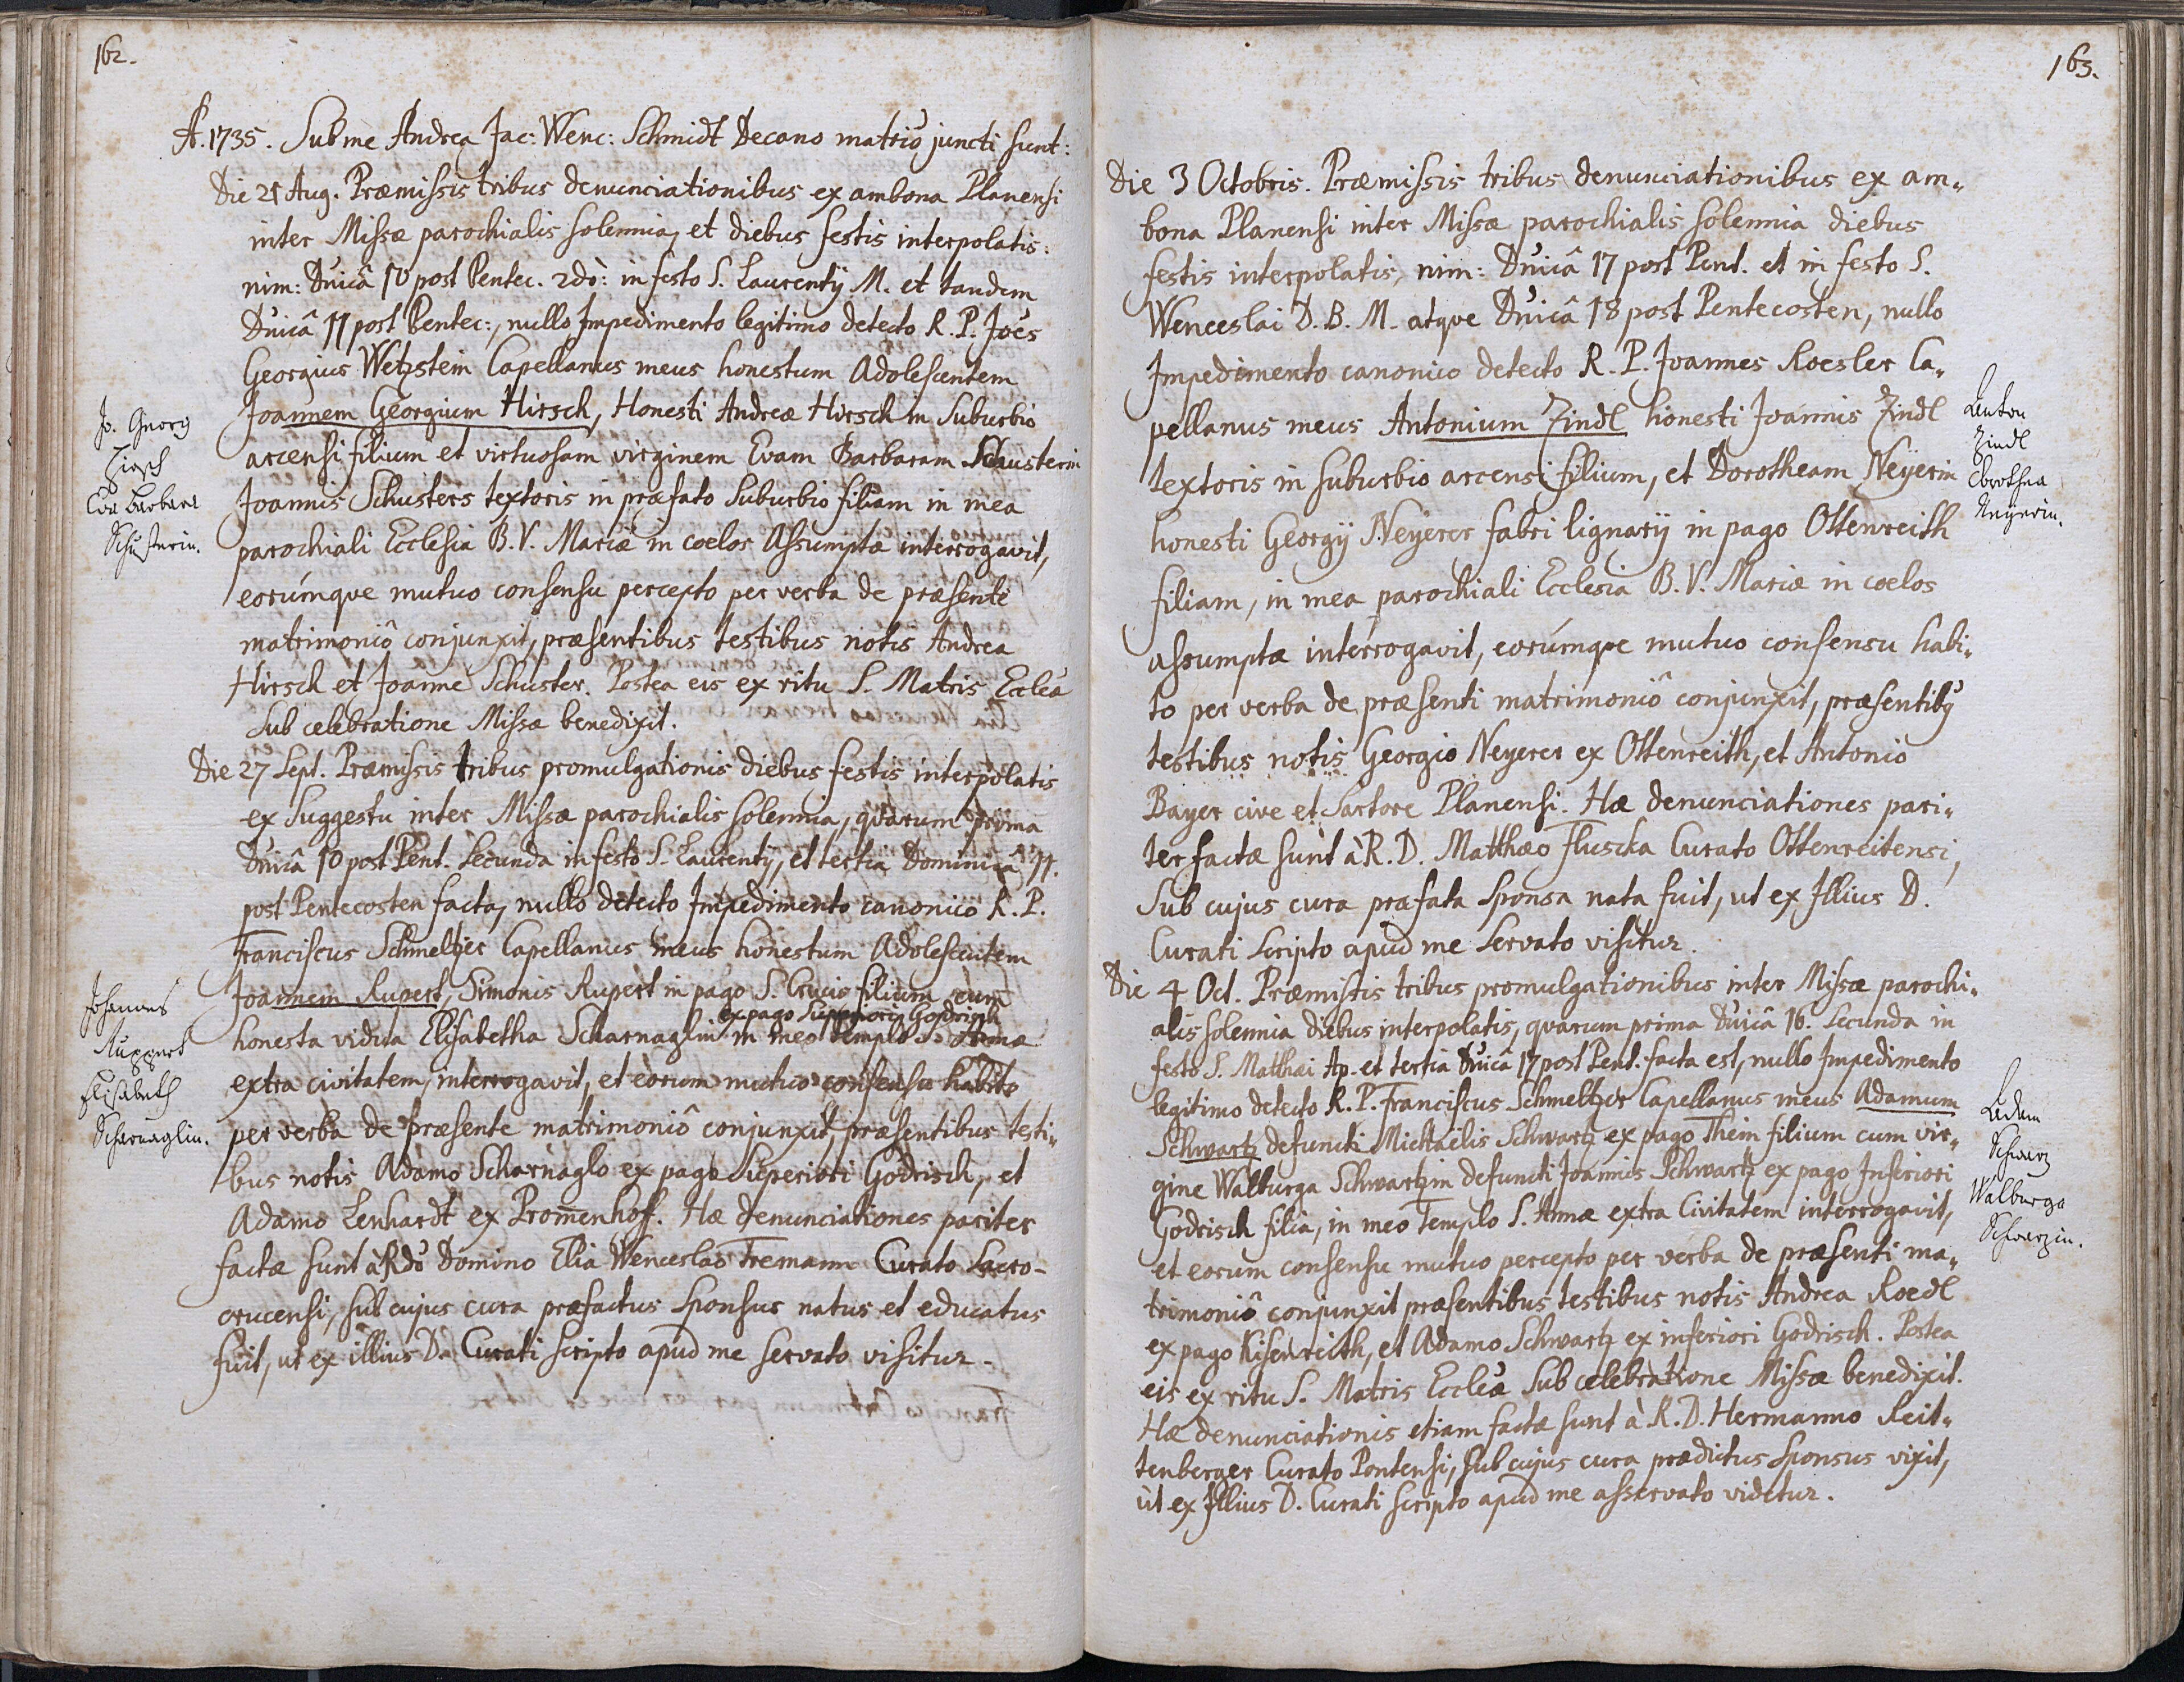 162.
A. 1735. Sub me Andrea Jac: Wenc: Schmidt Decano matrio juncti sunt:
Die 21 Aug. Præmissis tribus denunciationibus ex ambona Planensi
inter Missæ parochialis solemnia, et diebus festis interpolatis:
nim: Dnicâ 10 post Pentec. 2dò: in festo S. Laurentÿ M. et tandem
Dnicâ 11 post Pentec:, nullo Impedimento legitimo detecto R. P. Joes
Georgius Wetzstein Capellanus meus honestum Adolescentem
Joannem Georgium Hirsch, Honesti Andreæ Hirsch in Suburbio
arcensi filium et virtuosam virginem Evam Barbaram Schusterin
Joannis Schusters textoris in præfato Suburbio filiam in mea
parochiali Ecclesia B. V. Mariæ in coelos Assumptæ interrogavit,
eorúmque mutuo consensu percepto per verba de præsente
matrimoniô conjunxit, præsentibus testibus notis Andrea
Hirsch et Joanne Schuster. Postea eis ex ritu S. Matris Eccleæ
sub celebratione Missæ benedixit.
Jo. Georg
Hirsch
Eva Barbara
Schusterin.
Die 27 Sept. Præmissis tribus promulgationis diebus festis interpolatis
ex Suggestu inter Missæ parochialis solemnia, quarum prima
Dnicâ 10 post Pent. Secunda in festo S. Laurentÿ, et tertia Dominicâ 11.
post Pentecosten facta, nullo detecto Impedimento canonico R. P.
Franciscus Schmeltzer Capellanus meus honestum Adolescentem
Joannem Rupert, Simonis Rupert in pago S. Crucis filium cum
ex pago Superiori Godrisch
honesta vidua Elisabetha Scharnaglin in meo templo S. Annæ
extra civitatem, interrogavit, et eorum mutuo consensu habito
per verba de præsente matrimoniô conjunxit, præsentibus testi-
bus notis Adamo Scharnaglo ex pago Superiori Godrisch, et
Adamo Lenhardt ex Prom̄enhoff. Hæ denunciationes pariter
factæ sunt à Rdo Domino Elia Wenceslao Fremann Curato Sacro-
crucensi, sub cujus cura præfactus Sponsus natus et educatus
fuit, ut ex illius D. Curati scripto apud me servato visitur.
Johannes
Ruppert
Elisabeth
Scharnaglin.
163.
Die 3 Octobris. Præmissis tribus denunciationibus ex am-
bona Planensi inter Missæ parochialis solemnia diebus
festis interpolatis, nim: Dnicâ 17 post Pent. et in festo S.
Wenceslai D. B. M. atque Dnicâ 18 post Pentecosten, nullo
Impedimento canonico detecto R. P. Joannes Roesler Ca-
pellanus meus Antonium Zindl honesti Joannis Zindl
textoris in suburbio arcensi filium, et Dorotheam Neÿerin
honesti Georgÿ Neÿerer fabri lignarÿ in pago Ottenreith
filiam, in mea parochiali Ecclesia B. V. Mariæ in coelos
assumptæ interrogavit, eorúmque mutuo consensu habi-
to per verba de præsenti matrimoniô conjunxit, præsentibꝰ
testibus notis Georgio Neÿerer ex Ottenreith, et Antonio
Bayer cive et Sartore Planensi. Hæ denunciationes pari-
ter factæ sunt à R. D. Matthæo Fluscka Curato Ottenreitensi,
sub cujus cura præfata Sponsa nata fuit, ut ex Illius D.
Curati Scripto apud me Servato visitur.
Anton
Zindl
Dorothea
Neyerin.
Die 4 Oct. Præmissis tribus promulgationibus inter Missæ parochi-
alis solemnia diebus interpolatis, quarum prima Dnicâ 16. Secunda in
festo S. Matthæi Ap. et tertia Dnicâ 17 post Pent. facta est, nullo Impedimento
legitimo detecto R. P. Franciscus Schmeltzer Capellanus meus Adamum
Schwartz defuncti Michaelis Schwartz ex pago Thein filium cum vir-
gine Walburga Schwartzin defuncti Joannis Schwartz ex pago Inferiori
Godrisch filia, in meo Templo S. Annæ extra Civitatem interrogavit,
et eorum consensu mutuo percepto per verba de præsenti ma-
trimoniô conjunxit præsentibus testibus notis Andrea Roedl
ex pago Kisenreith, et Adamo Schwartz ex inferiori Godrisch. Postea
eis ex ritu S. Matris Eccleæ sub celebratione Missæ benedixit.
Hæ denunciationis etiam factæ sunt à R. D. Hermanno Reit-
tenberger Curato Pontensi, sub cujus cura prædictus Sponsus vixit,
ùt ex Illius D. Curati scripto apud me asservato videtur.
Adam
Schwarz
Walburga
Schwarzin.